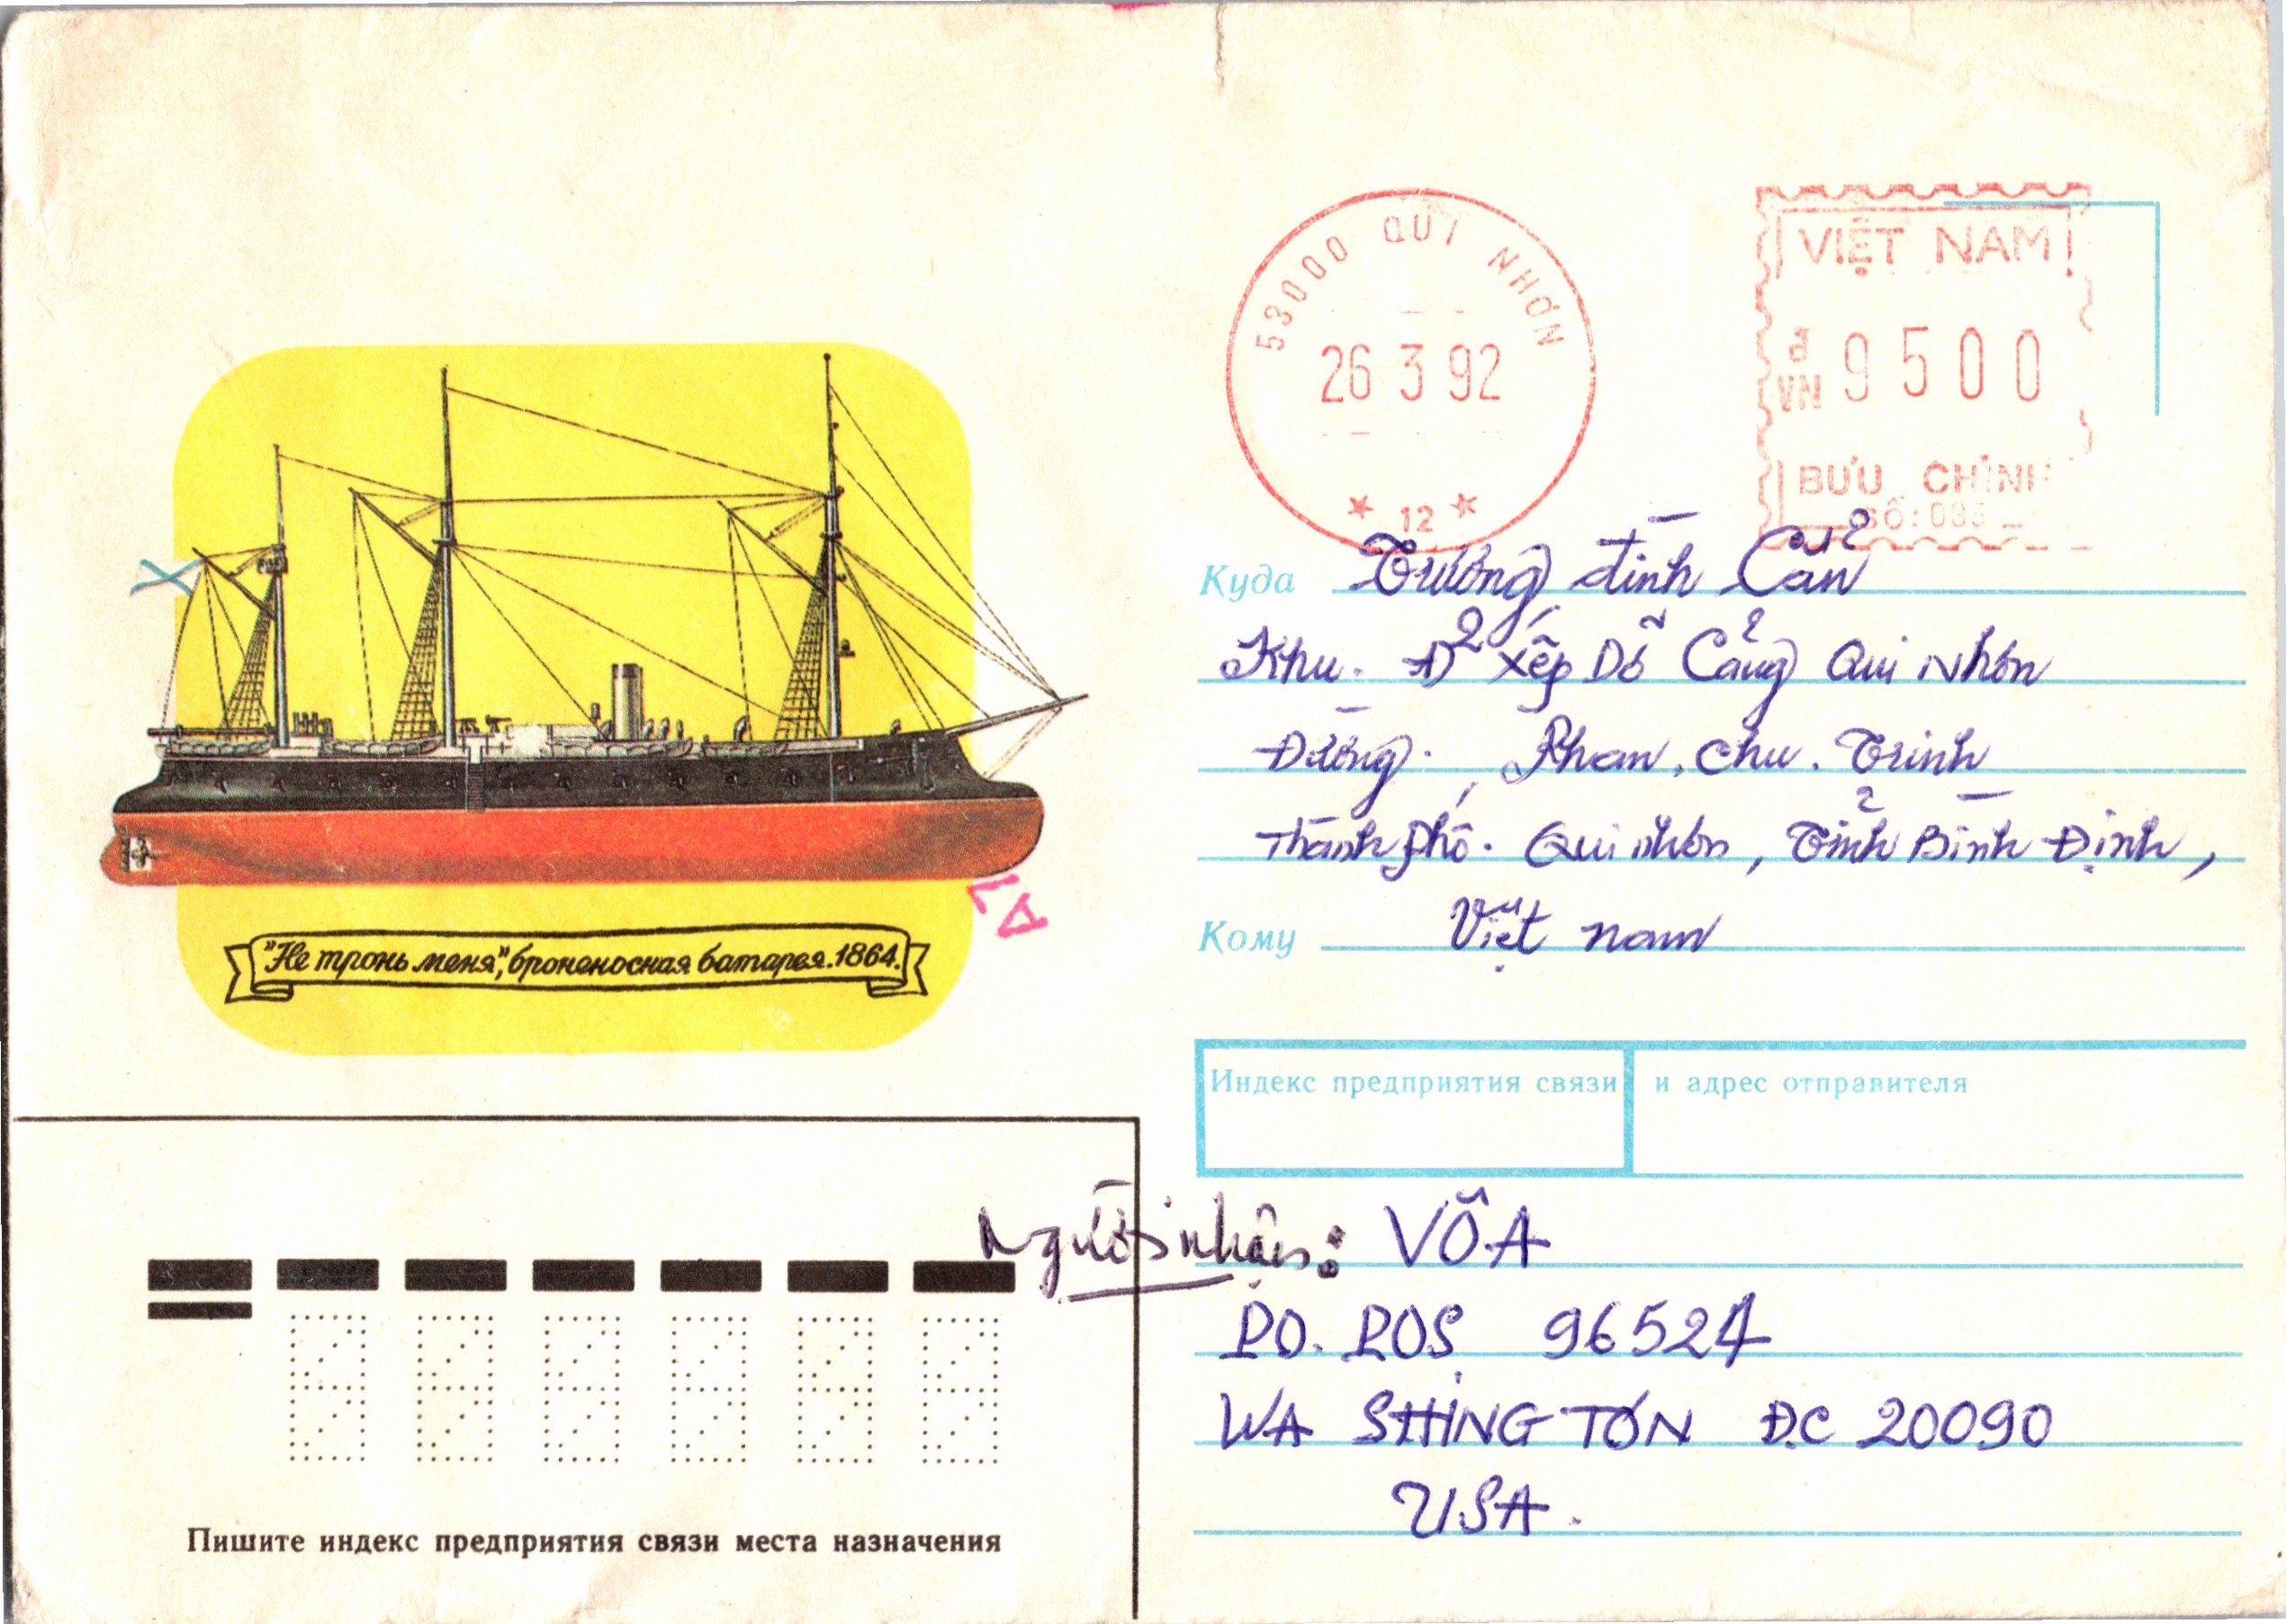 53000 QUI NHƠN
26 3 92
* 12 *
VIỆT NAM
đ VN 9500
BƯU CHÍNH
SỐ: 035
Куда Trường đình Cẩn
Khu. Đ2 xếp Dỡ Cảng Qui Nhơn
Đường. Phan. Chu. Trinh
Thành phố. Qui nhơn, Tỉnh Bình Định,
Кому Việt nam
"Не тронь меня", броненосная батарея. 1864.
Индекс предприятия связи и адрес отправителя
Người nhận: VÕA
PO. POS 96524
WA SHING TON Đ.C 20090
USA.
Пишите индекс предприятия связи места назначения